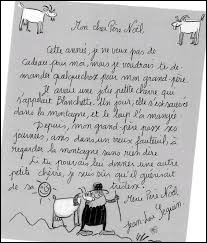 Mon cher Père Noël
Cette année, je ne veux pas de
cadeau pour moi, mais je voudrais te de-
mander quelque chose pour mon grand-père.
Il avait une jolie petite chèvre qui
s'appelait Blanchette. Un jour, elle s'est sauvée
dans la montagne, et le loup l'a mangée.
Depuis, mon grand-père passe ses
journées, assis dans un vieux fauteuil, à
regarder la montagne sans rien dire.
Si tu pouvais lui donner une autre
petite chèvre, je suis sûr qu'il guérirait
de sa tristesse !
Merci Père Noël
Jean-Luc Seguin